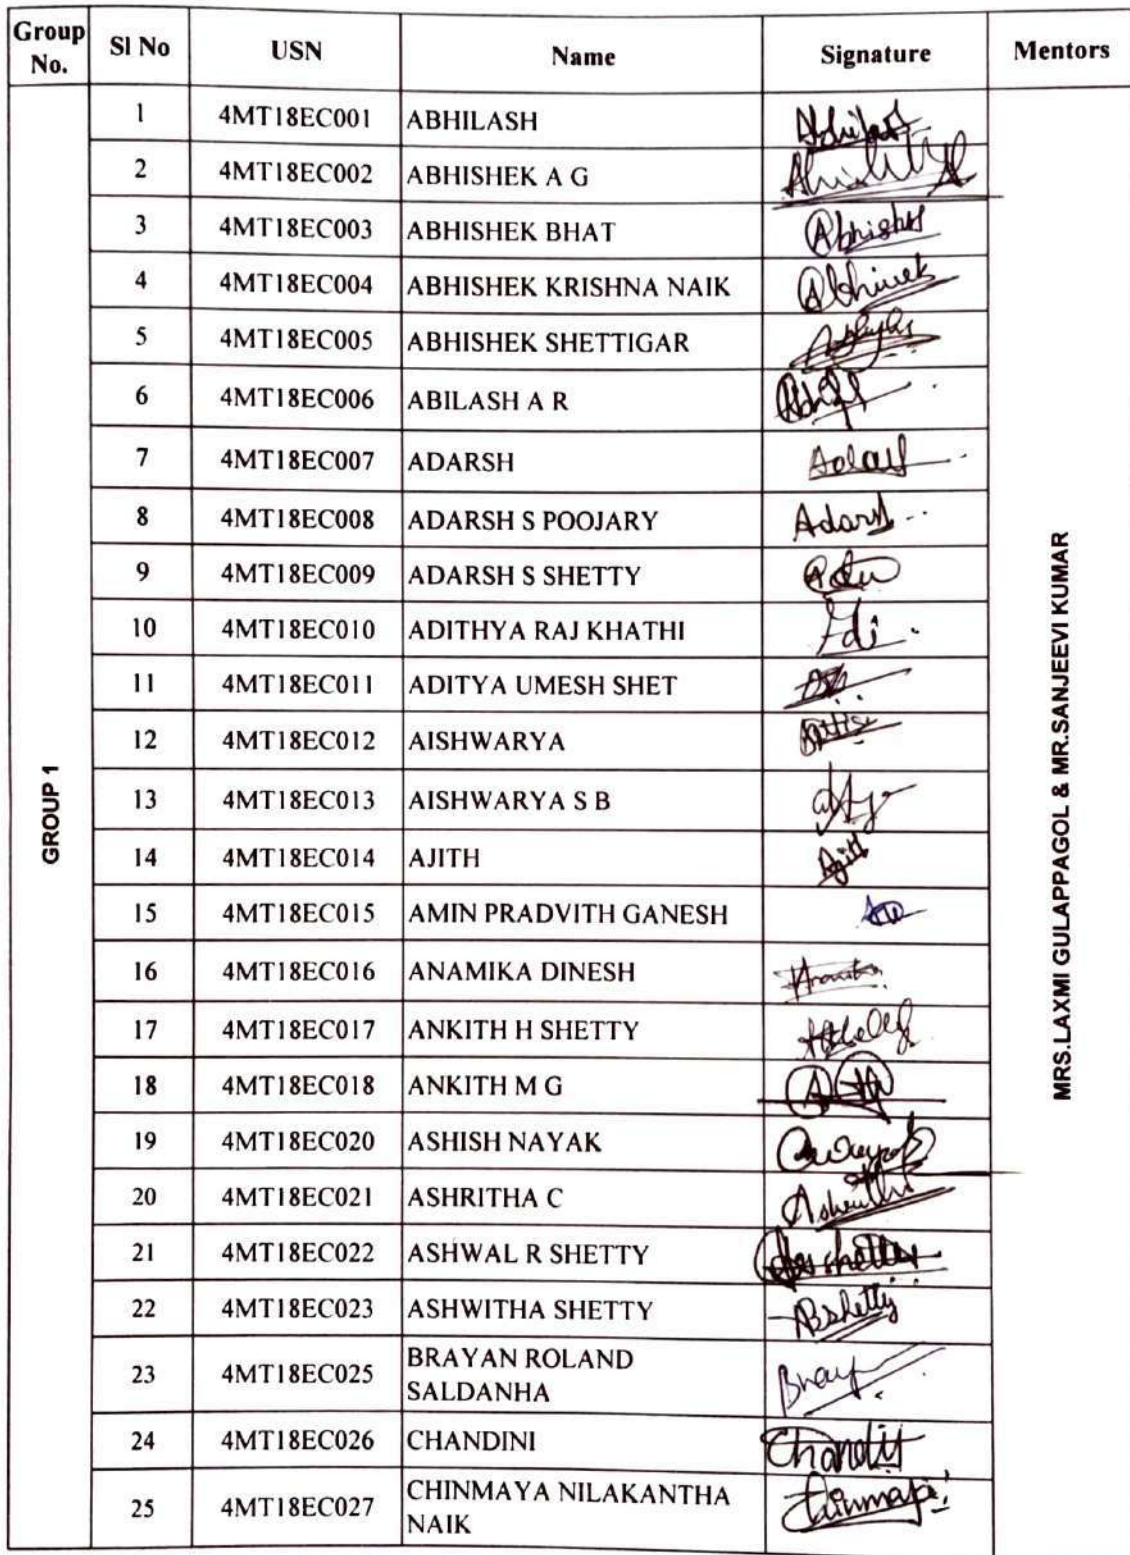 Group No. Sl No USN Name Signature Mentors
GROUP 1
1 4MT18EC001 ABHILASH Abhilash
2 4MT18EC002 ABHISHEK A G
3 4MT18EC003 ABHISHEK BHAT Abhishek
4 4MT18EC004 ABHISHEK KRISHNA NAIK
5 4MT18EC005 ABHISHEK SHETTIGAR
6 4MT18EC006 ABILASH A R
7 4MT18EC007 ADARSH
8 4MT18EC008 ADARSH S POOJARY Adarsh
9 4MT18EC009 ADARSH S SHETTY
10 4MT18EC010 ADITHYA RAJ KHATHI
11 4MT18EC011 ADITYA UMESH SHET
12 4MT18EC012 AISHWARYA
13 4MT18EC013 AISHWARYA S B
14 4MT18EC014 AJITH Ajith
15 4MT18EC015 AMIN PRADVITH GANESH
16 4MT18EC016 ANAMIKA DINESH
17 4MT18EC017 ANKITH H SHETTY
18 4MT18EC018 ANKITH M G
19 4MT18EC020 ASHISH NAYAK
20 4MT18EC021 ASHRITHA C
21 4MT18EC022 ASHWAL R SHETTY
22 4MT18EC023 ASHWITHA SHETTY
23 4MT18EC025 BRAYAN ROLAND
SALDANHA
24 4MT18EC026 CHANDINI
25 4MT18EC027 CHINMAYA NILAKANTHA
NAIK Chinmaya
MRS.LAXMI GULAPPAGOL & MR.SANJEEVI KUMAR